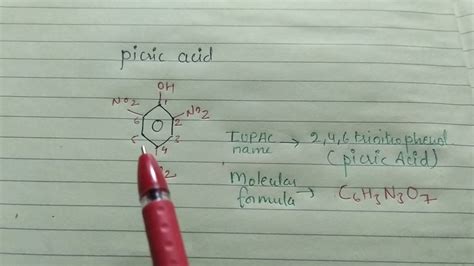 picric acid
OH
NO2
1
NO2
6
2
3
4
IUPAC name → 2,4,6 trinitrophenol
(picric Acid)
Molecular formula → C6H3N3O7